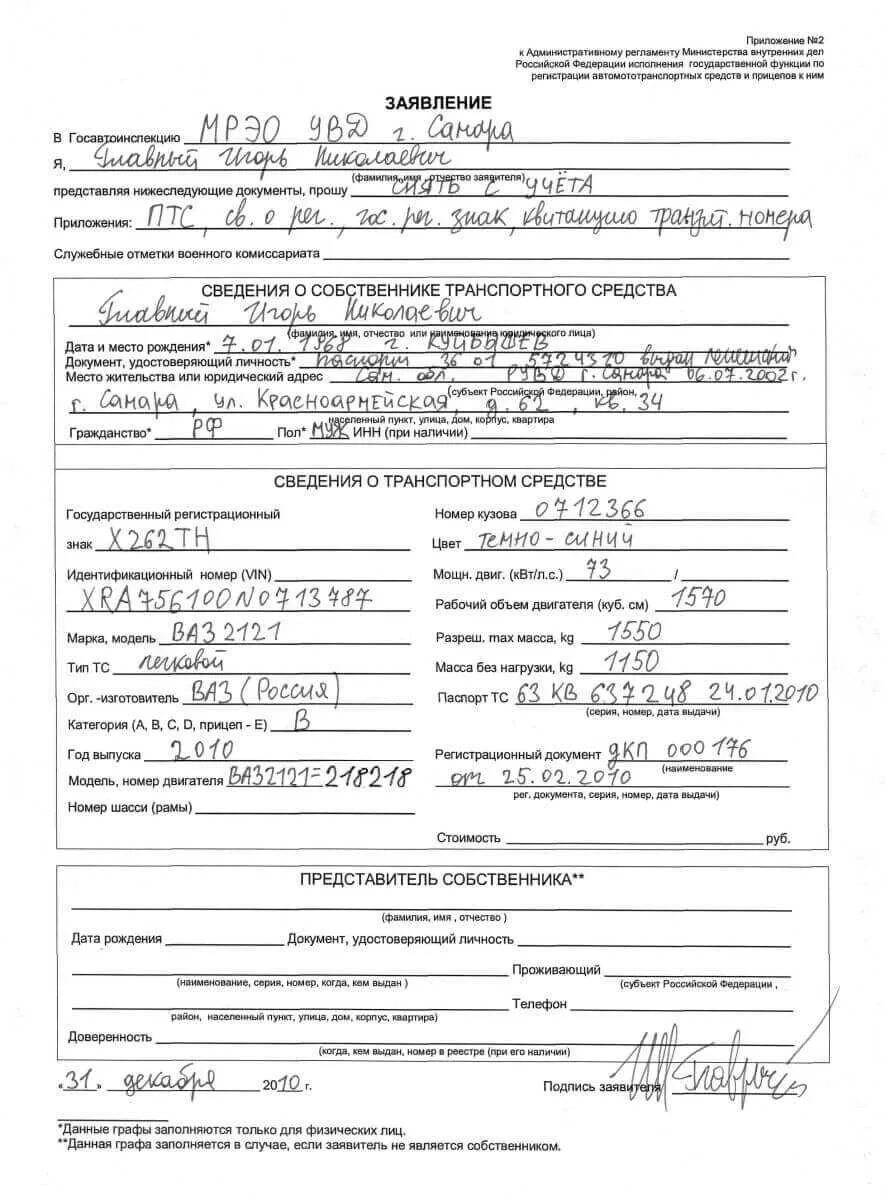 Приложение №2
к Административному регламенту Министерства внутренних дел
Российской Федерации исполнения государственной функции по
регистрации автомототранспортных средств и прицепов к ним
ЗАЯВЛЕНИЕ
В Госавтоинспекцию МРЭО УВД г. Самара
Я, Главный Игорь Николаевич
(фамилия, имя, отчество заявителя)
представляя нижеследующие документы, прошу СНЯТЬ С УЧЁТА
Приложения: ПТС, св. о рег., гос. рег. знак, квитанцию транзит. номера
Служебные отметки военного комиссариата
СВЕДЕНИЯ О СОБСТВЕННИКЕ ТРАНСПОРТНОГО СРЕДСТВА
Главный Игорь Николаевич
(фамилия, имя, отчество или наименование юридического лица)
Дата и место рождения* 7.01.1968 г. КУЙБЫШЕВ
Документ, удостоверяющий личность* паспорт 36 01 5724320 выдан Ленинским
Место жительства или юридический адрес Сам. обл. РУВД г. Самара 06.07.2002г.
(субъект Российской Федерации, район,
г. Самара, ул. Красноармейская, д. 62, кв. 34
населенный пункт, улица, дом, корпус, квартира
Гражданство* РФ Пол* МУЖ ИНН (при наличии)
СВЕДЕНИЯ О ТРАНСПОРТНОМ СРЕДСТВЕ
Государственный регистрационный
знак Х262ТН
Идентификационный номер (VIN)
XRA756100N0713787
Марка, модель ВАЗ 2121
Тип ТС легковой
Орг. -изготовитель ВАЗ (Россия)
Категория (А, В, С, D, прицеп - Е) В
Год выпуска 2010
Модель, номер двигателя ВАЗ2121=218218
Номер шасси (рамы)
Номер кузова 0712366
Цвет темно-синий
Мощн. двиг. (кВт/л.с.) 73 /
Рабочий объем двигателя (куб. см) 1570
Разреш. max масса, kg 1550
Масса без нагрузки, kg 1150
Паспорт ТС 63 КВ 637248 24.01.2010
(серия, номер, дата выдачи)
Регистрационный документ ДКП 000176
(наименование
от 25.02.2010
рег. документа, серия, номер, дата выдачи)
Стоимость руб.
ПРЕДСТАВИТЕЛЬ СОБСТВЕННИКА**
(фамилия, имя , отчество )
Дата рождения Документ, удостоверяющий личность
Проживающий
(наименование, серия, номер, когда, кем выдан ) (субъект Российской Федерации ,
Телефон
район, населенный пункт, улица, дом, корпус, квартира)
Доверенность
(когда, кем выдан, номер в реестре (при его наличии)
„31„ декабря 2010 г. Подпись заявителя Главный
*Данные графы заполняются только для физических лиц.
**Данная графа заполняется в случае, если заявитель не является собственником.